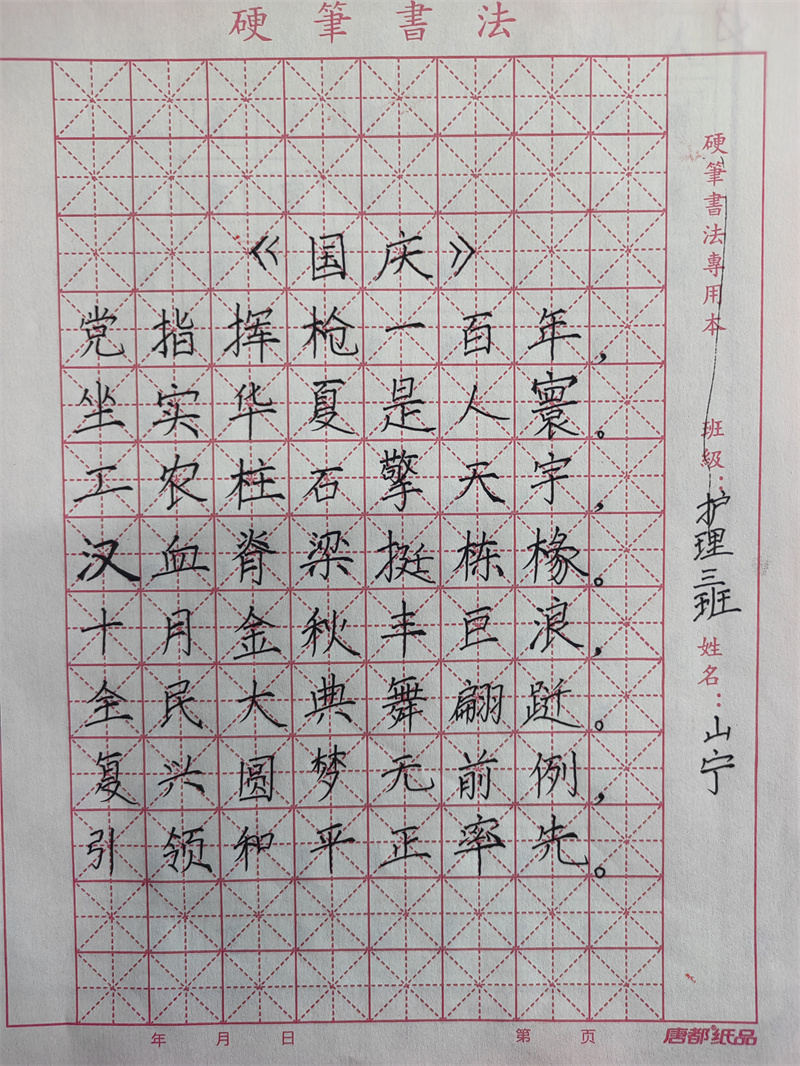 硬筆書法
《国庆》
党指挥枪一百年，
坐实华夏是人寰。
工农柱石擎天宇，
汉血脊梁挺栋椽。
十月金秋丰巨浪，
全民大典舞翩跹。
复兴圆梦无前例，
引领和平正率先。
硬筆書法專用本 班級：护理三班 姓名：山宁
年 月 日 第 页 唐都纸品